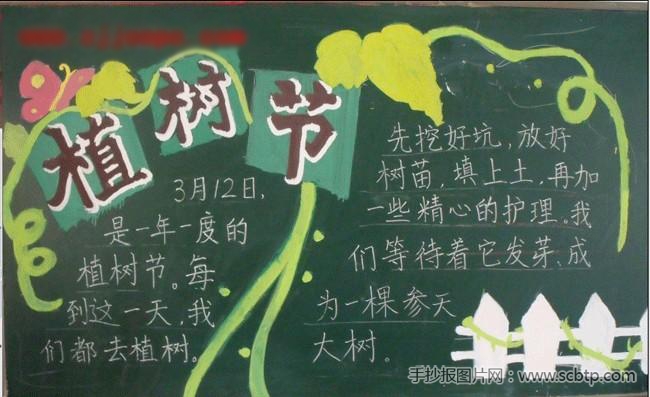 植树节
3月12日,
是一年一度的
植树节。每
到这一天,我
们都去植树。
先挖好坑,放好
树苗,填上土,再加
一些精心的护理。我
们等待着它发芽,成
为一棵参天
大树。
手抄报图片网:www.scbtp.com